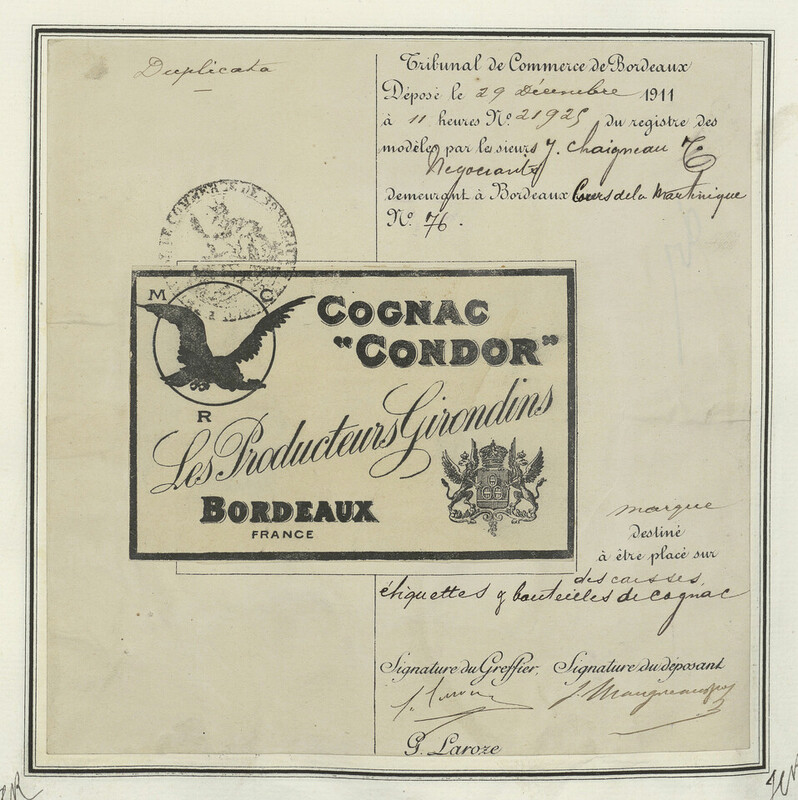 Duplicata
Tribunal de Commerce de Bordeaux
Déposé le 29 Décembre 1911
à 11 heures No. 21925 du registre des
modèles par les sieurs J. Chaigneau
Négociants
demeurant à Bordeaux Cours de la Martinique
No. 76.
DE COMMERCE DE BORDEAUX
M C
R
COGNAC
"CONDOR"
Les Producteurs Girondins
BORDEAUX
FRANCE
marque
destiné
à être placé sur
des caisses,
étiquettes & bouteilles de cognac
Signature du Greffier, Signature du déposant
G. Laroze